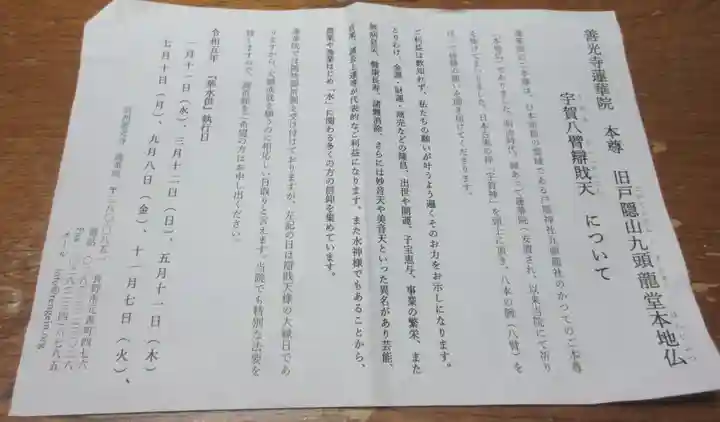 善光寺蓮華院　本尊　旧戸隠山九頭龍堂本地仏
宇賀八臂辯財天　について
蓮華院のご本尊は、日本有数の霊域である戸隠神社九頭龍社のかつてのご本尊
（本地仏）でありました。明治時代、縁あって蓮華院に安置され、以来当院にて祈り
を捧げてまいりました。日本古来の神「宇賀神」を頭上に頂き、八本の腕（八臂）を
ご利益は数知れず、私たちの願いが叶うよう遍くそのお力をお示しになります。
とりわけ、金運・財運・商売などの隆昌、出世や開運、子宝恵与、事業の繁栄、また
無病息災、除病長寿、諸難消除、さらには妙音天や美音天といった異名があり芸能、
音楽、演説上達等が代表的なご利益になります。また水神様でもあることから、
農業や漁業はじめ「水」に関わる多くの方の信仰を集めています。
令和五年　『華水供』執行日
一月十一日（水）、三月十二日（日）、五月十一日（木）
七月十日（月）、九月八日（金）、十一月七日（火）、
蓮華院では随時御祈願を受け付けておりますが、左記の日は辯財天様の大縁日であ
りますから、大願成就を願うのに相応しい日取りと言えます。当院でも特別な法要を
致しますので、御祈願をご希望の方はお申し出ください。
信州善光寺　蓮華院　〒三八〇-〇八五一　長野市元善町四七六
メール　info@rengein.org